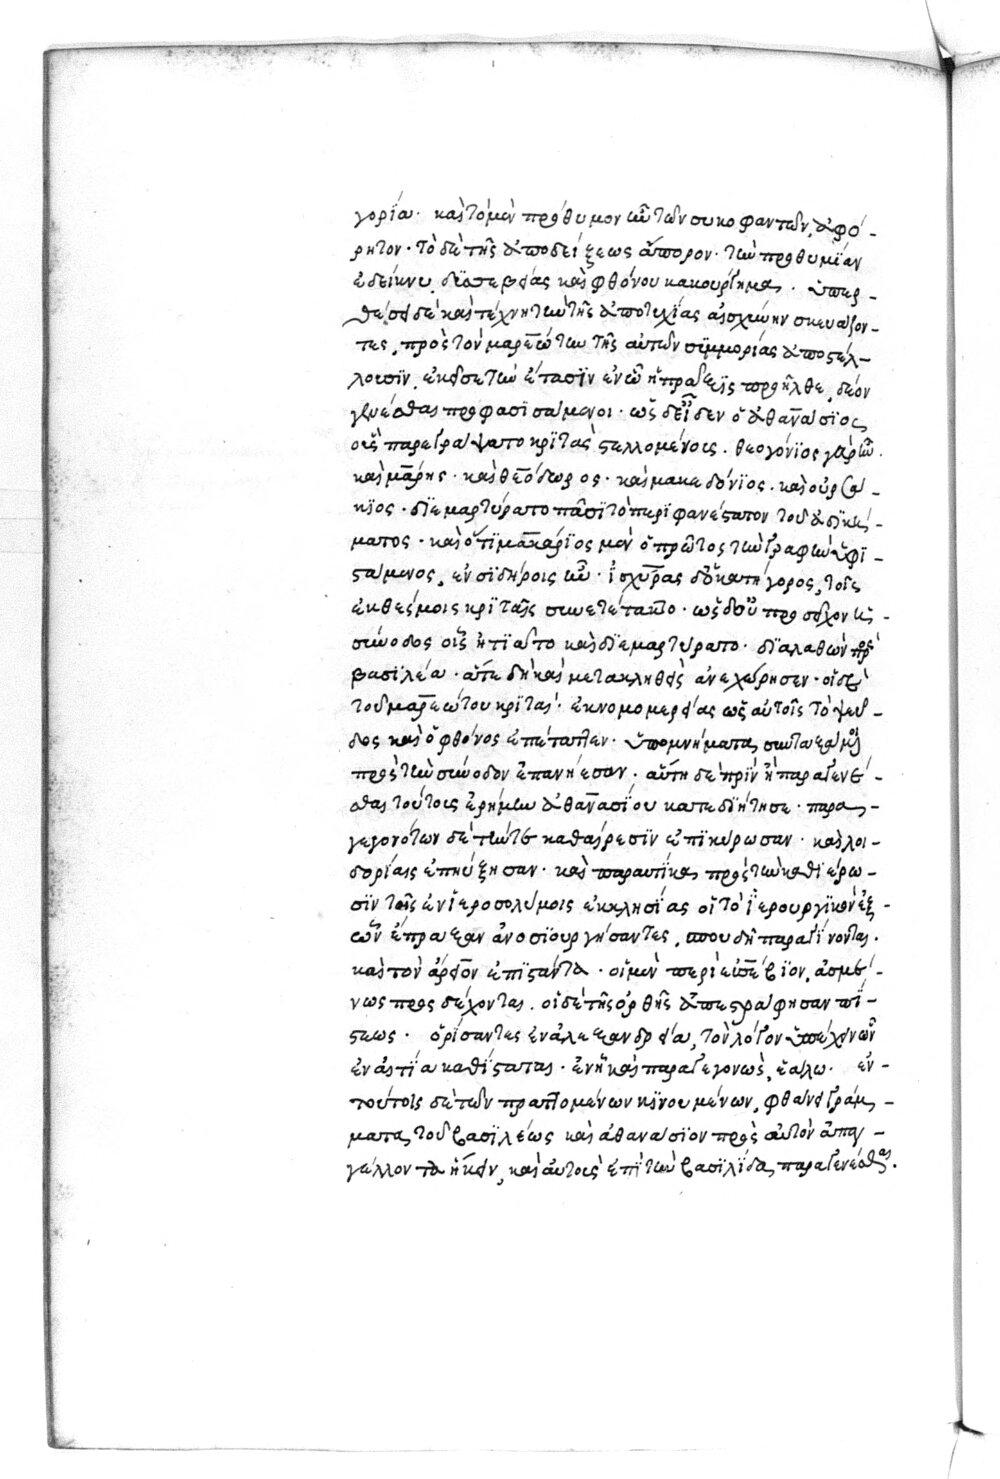 γορΐα· καὶ τὸ μὲν πρόθυμον ἦν τῶν συκοφαντῶν, ἀφό-
ρητον· τὸ δὲ τῆς ἀποδείξεως ἄπορον· τὴν προθυμΐαν
ἐδείκνυ, δϊ ἀσεβείας καὶ φθόνου κακούργημα. ὑπερ-
θέσει δὲ καὶ τέχνη τὴν τῆς ἀποτυχίας αἰσχύνην σκευάζον-
τες, πρὸς τὸν μαρεώτην τῆς αὐτῶν συμμορίας ἀποστέλ-
λουσϊν, ἐκεῖσε τὴν ἐξέτασϊν ἐν ὧ ἡ πρᾶξϊς προῆλθε, δέον
γενέσθαι προφασισάμενοι· ὡς δ' εἶδεν ὁ ἀθανάσϊος
οὓς παρεγράψατο κρϊτὰς στελλομένους. θεογόνϊος γὰρ ἦν.
καὶ μάρης· καὶ θεόδωρος· καὶ μακεδόνϊος. καὶ οὐρσά-
κϊος· δϊεμαρτύρατο πᾶσϊ τὸ περϊφανέστατον τοῦ ἀδϊκή-
ματος· καὶ ὅτι μακάρϊος μὲν ὁ πρῶτος τὴν γραφὴν ὑφϊ-
στάμενος, ἐν σϊδήροις ἦν· ἰσχύρας δ' ὁ κατήγορος, τοῖς
ἐκθέσμοις κρϊταῖς συνετέτακτο· ὡς δ' οὐ προσεῖχεν ἡ
σύνοδος οἷς ἠτϊᾶτο καὶ δϊεμαρτύρατο· δϊαλαθὼν πρὸς
βασϊλέα· ἅτε δὴ καὶ μετακληθεὶς ἀνεχώρησεν· οἱ δὲ
τοῦ μαρεώτου κρϊταὶ· ἐκ μονομερείας ὡς αὐτοῖς τὸ ψεῦ-
δος καὶ ὁ φθόνος ἐπέταττεν· ὑπομνήματα συνταξάμενοι
πρὸς τὴν σύνοδον ἐπανήεσαν· αὕτη δὲ πρϊν ἢ παραγενέ-
σθαι τούτους ἐρήμην ἀθανασΐου κατεδϊήτησε· παρα-
γεγονότων δὲ τήν τε καθαίρεσϊν ἐπϊκύρωσαν· καὶ λοι-
δορίαις ἐπηύξησαν· καὶ παραυτΐκα πρὸς τὴν καθϊέρω-
σϊν τῆς ἐν ἱεροσολύμοις ἐκκλησίας οἱ τὸ ἱερουργϊκὸν ἐξ
ὧν ἔπραξαν ἀνοσϊουργήσαντες, σπουδῆ παραγΐνονται.
καὶ τὸν ἄρειον ἐπϊστάντα· οἱ μὲν περὶ εὐσέβϊον, ἀσμέ-
νως προσδέχονται. οἱ δὲ τῆς ὀρθῆς ἀπεστράφησαν πΐ-
στεως· ὁρίσαντες ἐν ἀλεξανδρεία, τὸν λόγον ὑπέχειν ὧν
ἐν αἰτΐα καθΐσταται· ἐν ἧ καὶ παραγεγονὼς, ἑάλω· ἐν
τούτοις δὲ τῶν πραττομένων κϊνουμένων, φθάνει γράμ-
ματα τοῦ βασϊλέως καὶ ἀθανάσϊον πρὸς αὐτὸν ἀπαγ-
γέλλοντα ἥκειν, καὶ αὐτοὺς ἐπὶ τὴν βασϊλΐδα παραγενέσθαι.